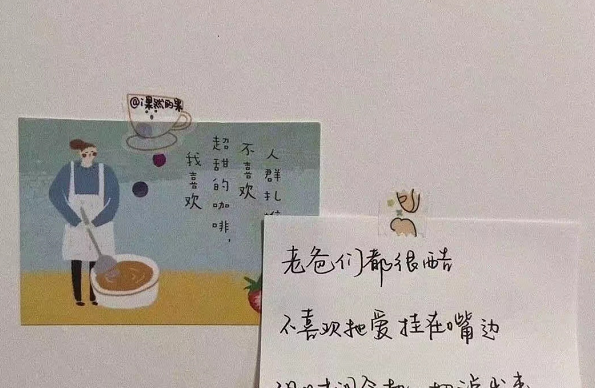 @i果然的果
人群扎
不喜欢
超甜的咖啡，
我喜欢
老爸们都很酷
不喜欢把爱挂在嘴边